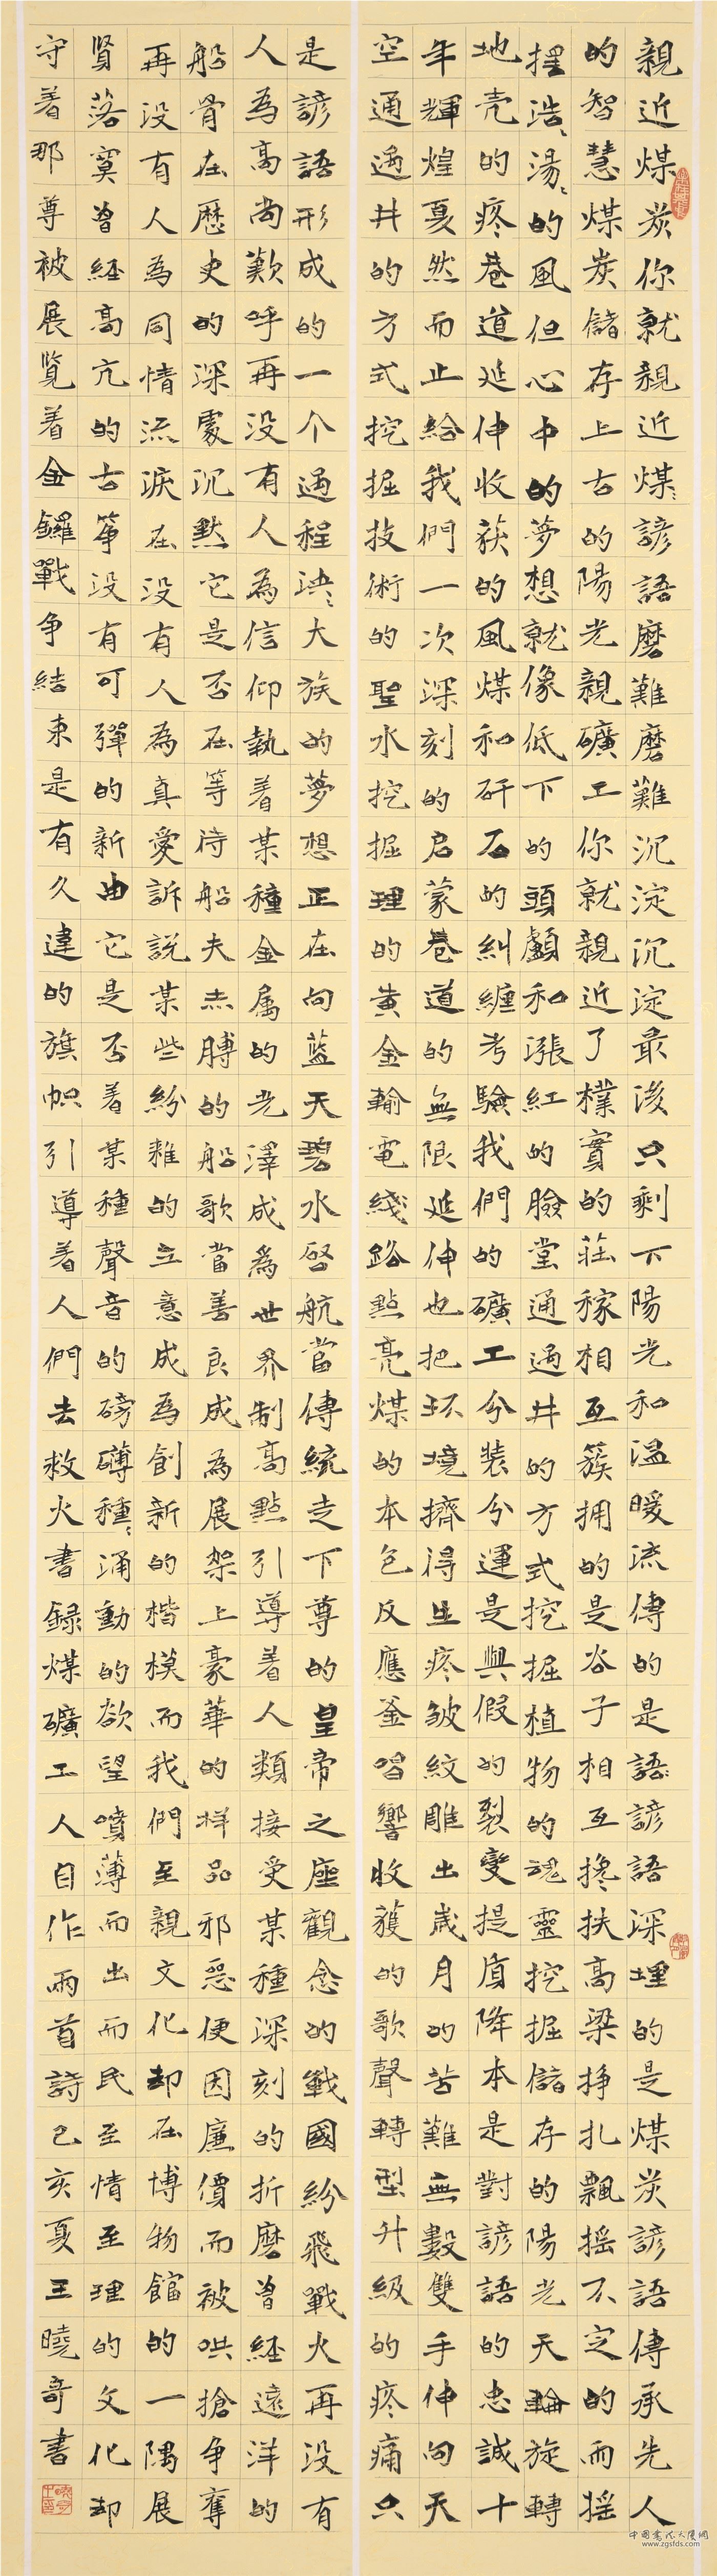 親近煤炭你就親近煤煤諺語磨難磨難沉淀沉淀最後只剩下陽光和温暖流傳的是語諺語深埋的是煤炭諺語傳承先人
的智慧煤炭儲存上古的陽光親礦工你就親近了樸實的莊稼相互簇拥的是谷子相互攙扶高梁挣扎飄摇不定的而摇
摆浩浩湯湯的風但心中的夢想就像低下的頭顱和漲紅的臉堂通過井的方式挖掘植物的魂靈挖掘儲存的陽光天輪旋轉
地壳的疼巷道延伸收获的風煤和矸石的糾纏考驗我們的礦工分装分運是與假的裂變提質降本是對諺語的忠誠十
年輝煌戛然而止給我們一次深刻的启蒙巷道的無限延伸也把环境擠得生疼皱紋雕出歲月的苦難無數雙手伸向天
空通過井的方式挖掘技術的聖水挖掘理的黄金輸電綫路點亮煤的本色反應釜唱響收獲的歌聲轉型升級的疼痛只
是諺語形成的一个過程泱泱大族的夢想正在向蓝天碧水啓航當傳統走下尊的皇帝之座觀念的戰國紛飛戰火再没有
人為高尚歎呼再没有人為信仰執着某種金属的光澤成爲世界制高點引導着人類接受某種深刻的折磨曾經遠洋的
船骨在歷史的深處沉默它是否在等待船夫赤膊的船歌當善良成為展架上豪華的样品邪惡便因廉價而被哄搶争奪
再没有人為同情流淚在没有人為真愛訴説某些紛雜的立意成為創新的楷模而我們至親文化却在博物館的一隅展
賢落寞曾經高亢的古筝没有可彈的新曲它是否着某種聲音的磅礴種種涌動的欲望噴薄而出而民至情至理的文化却
守着那尊被展覽着金鑼戰争結束是有久違的旗帜引導着人們去救火書録煤礦工人自作兩首詩己亥夏王曉奇書
中國書法大厦網
www.zgsfds.com